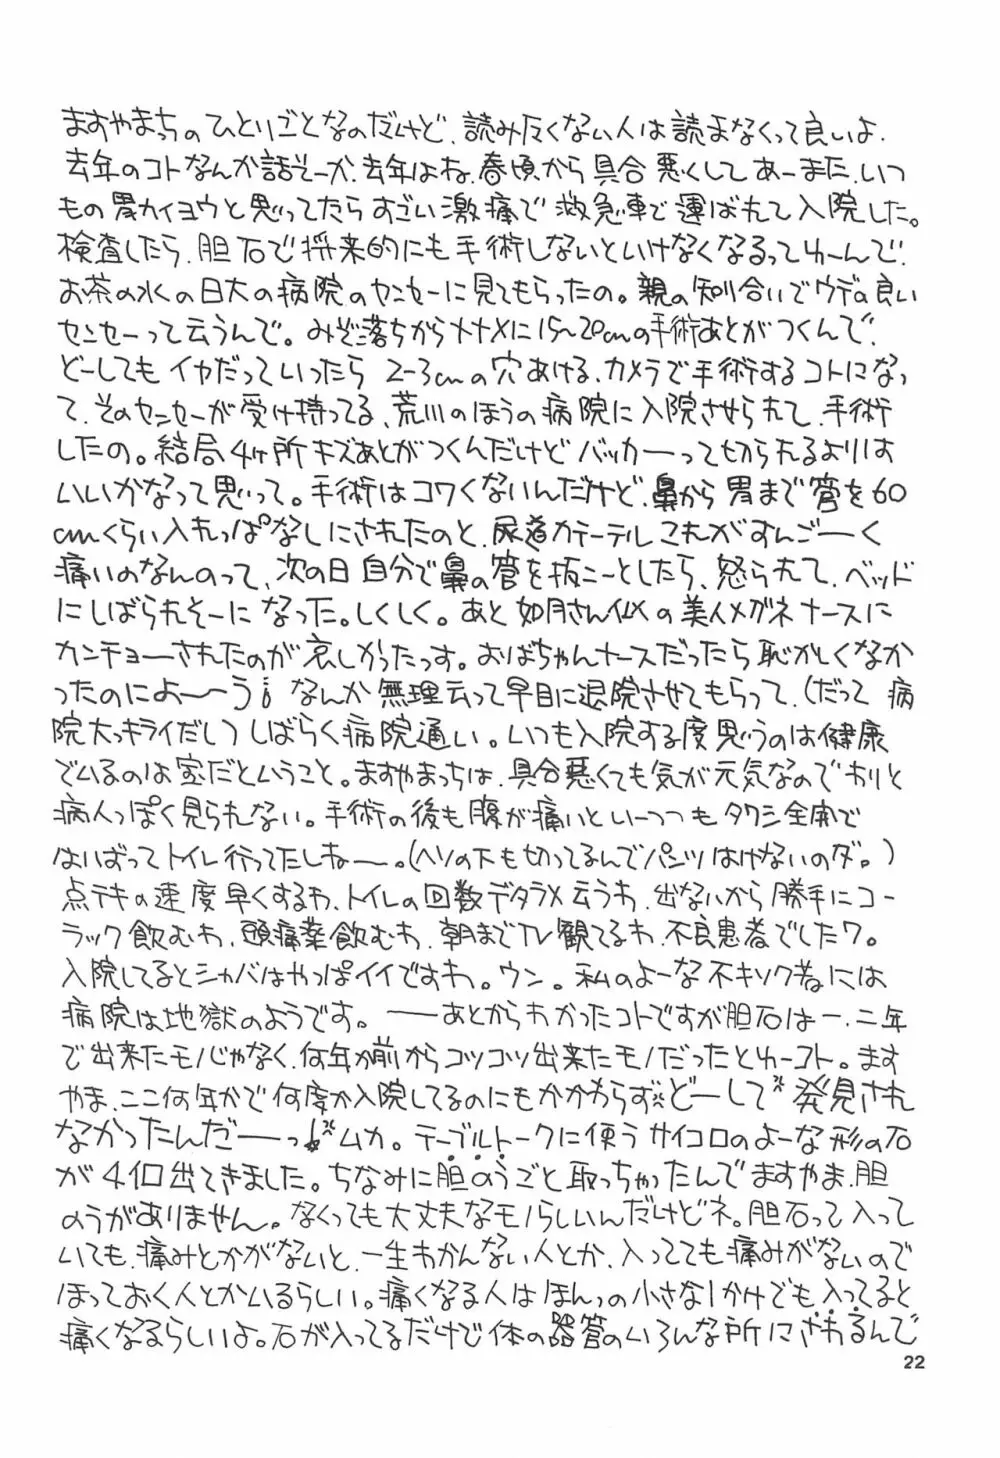 ますやまっちのひとりごとなのだけど、読みたくない人は読まなくって良いよ、
去年のコトなんか話そーか、去年はね、春頃から具合悪くしてあーまた、いつ
もの胃カイヨウと思ってたらすごい激痛で救急車で運ばれて入院した。
検査したら、胆石で将来的にも手術しないといけなくなるってゆーんで、
お茶の水の日大の病院のセンセーに見てもらったの。親の知り合いでウデの良い
センセーって云うんで。みぞ落ちからナナメに15~20cmの手術あとがつくんで、
どーしてもイヤだっていったら 2~3cmの穴あける、カメラで手術するコトになっ
て、そのセンセーが受け持ってる、荒川のほうの病院に入院させられて、手術
したの。結局4ヶ所キズあとがつくんだけどバッカーって切られるよりは
いいかなって思って。手術はコワくないんだけど、鼻から胃まで管を60
cmくらい入れっぱなしにされたのと、尿道カテーテルこれがすんごーく
痛いのなんのって、次の日自分で鼻の管を抜こーとしたら、怒られて、ベッド
にしばられそーになった。しくしく。あと如月さん似の美人メガネナースに
カンチョーされたのが哀しかったっす。おばちゃんナースだったら恥かしくなか
ったのによ～～う!なんか無理云って早目に退院させてもらって、(だって病
院大っキライだし)しばらく病院通い。いつも入院する度思うのは健康
でいるのは宝だということ。ますやまっちは、具合悪くても気が元気なのでおりと
病人っぽく見られない。手術の後も腹が痛いといーつつもタワシ全開で
はいばってトイレ行ってたしねー。(ヘソの下も切ってるんでパンツはけないのダ。)
点テキの速度早くするわ、トイレの回数デタラメ云うわ、出ないから勝手にコー
ラック飲むわ、頭痛薬飲むわ、朝までTV観てるわ、不良患者でしたワ。
入院してるとシャバはやっぱイイですわ。ウン。私のよーな不キソク者には
病院は地獄のようです。――あとからわかったコトですが胆石は一、二年
で出来たモノじゃなく、何年か前からコツコツ出来たモノだったとゆーコト。ます
やま、ここ何年かで何度か入院してるのにもかかわらずどーして発見され
なかったんだーっ!ムカ。テーブルトークに使うサイコロのよーな形の石
が4個出てきました。ちなみに胆のうごと取っちゃったんでますやま、胆
のうがありません。なくっても大丈夫なモノらしいんだけどネ。胆石って入って
いても、痛みとかがないと、一生わかんない人とか、入ってても痛みがないので
ほっておく人とかいるらしい。痛くなる人はほんっの小さな1かけでも入ってると
痛くなるらしいよ。石が入ってるだけで体の器管のいろんな所にさわるんで
22